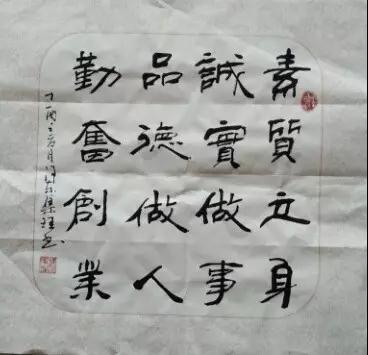 素質立身
誠實做事
品德做人
勤奮創業